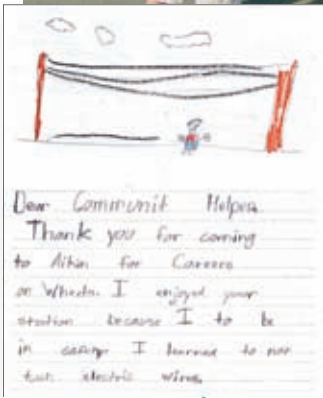 Dear Communit Helper
Thank you for coming
to Aikin for Careers
on Wheels. I enjoyed your
station because I to be
in I learned to not
electric wires.